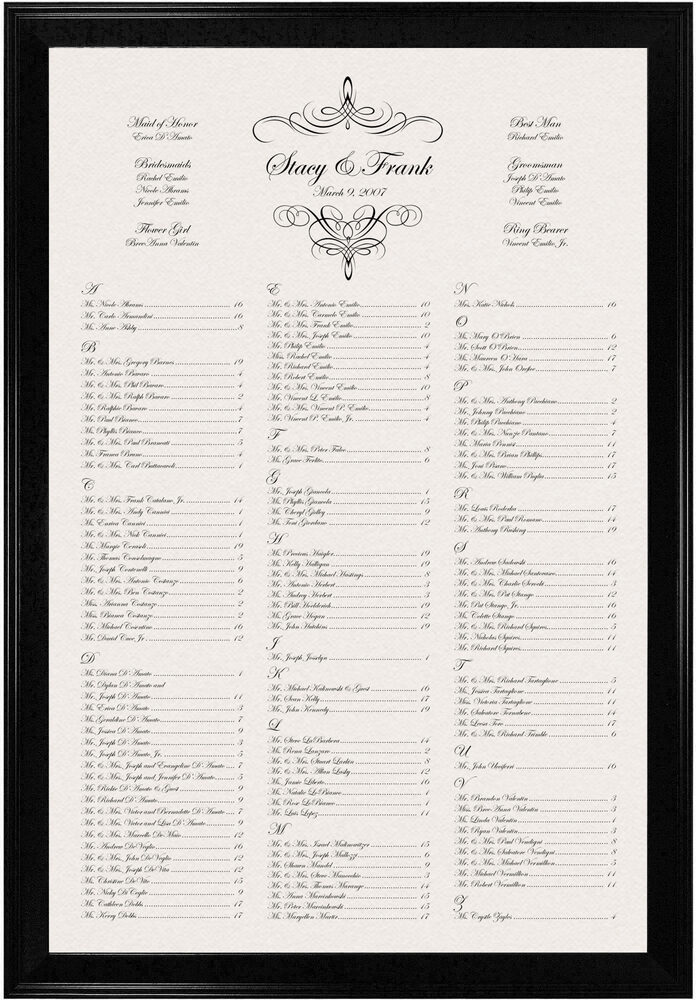 Maid of Honor
Erica D'Amato
Bridesmaids
Rachel Emilio
Nicole Abrams
Jennifer Emilio
Flower Girl
Bree Anna Valentin
Stacy & Frank
March 9, 2007
Best Man
Richard Emilio
Groomsman
Joseph D'Amato
Philip Emilio
Vincent Emilio
Ring Bearer
Vincent Emilio Jr.
A
Ms. Nicole Abrams 16
Mr. Carlo Armandini 16
Ms. Anne Ashby 8
B
Mr. & Mrs. Gregory Barnes 19
Mr. Antonio Bavaro 4
Mr. & Mrs. Phil Bavaro 4
Mr. & Mrs. Ralph Bavaro 2
Mr. Ralphie Bavaro 4
Mr. Paul Bianco 7
Ms. Phyllis Bianco 7
Mr. & Mrs. Paul Brancati 5
Ms. Franca Bruno 4
Mr. & Mrs. Carl Buttacavoli 1
C
Mr. & Mrs. Frank Catalano, Jr. 14
Mr. & Mrs. Andy Cannici 1
Ms. Enrica Cannici 1
Mr. & Mrs. Nick Cannici 1
Ms. Margie Cerasoli 19
Mr. Thomas Conselmagno 5
Mr. Joseph Contenelli 9
Mr. & Mrs. Antonio Costanzo 6
Mr. & Mrs. Ben Costanzo 2
Miss. Arianna Costanzo 2
Miss. Bianca Costanzo 2
Mr. Michael Cosentino 16
Mr. David Cuce, Jr 12
D
Ms. Diana D'Amato 1
Mr. Dylan D'Amato and
Mr. Joseph D'Amato 11
Ms. Erica D'Amato 3
Ms. Geraldine D'Amato 7
Ms. Jessica D'Amato 9
Mr. Joseph D'Amato 3
Mr. Joseph D'Amato, Jr. 5
Mr. & Mrs. Joseph and Evangeline D'Amato 7
Mr. & Mrs. Joseph and Jennifer D'Amato 5
Mr. Richie D'Amato & Guest 9
Mr. Richard D'Amato 9
Mr. & Mrs. Victor and Bernadette D'Amato 7
Mr. & Mrs. Victor and Lisa D'Amato 9
Mr. & Mrs. Marcello De Maio 12
Mr. Andrew DeVeglio 16
Mr. & Mrs. John DeVeglio 12
Mr. & Mrs. Joseph DeVita 12
Ms. Christine DeVito 15
Ms. Nicky DiCeglie 9
Ms. Cathleen Dobbs 17
Ms. Kerry Dobbs 17
E
Mr. & Mrs. Antonio Emilio 10
Mr. & Mrs. Carmelo Emilio 10
Mr. & Mrs. Frank Emilio 2
Mr. & Mrs. Joseph Emilio 10
Mr. Philip Emilio 4
Miss. Rachel Emilio 4
Mr. Richard Emilio 4
Mr. Robert Emilio 8
Mr. & Mrs. Vincent Emilio 10
Mr. Vincent L. Emilio 8
Mr. & Mrs. Vincent P. Emilio 4
Mr. Vincent P. Emilio, Jr. 4
F
Mr. & Mrs. Peter Falco 8
Ms. Grace Ferlito 6
G
Mr. Joseph Giancola 1
Ms. Phyllis Giancola 15
Ms. Cheryl Gidley 9
Ms. Teri Giordano 12
H
Mr. Previous Haigler 19
Ms. Kelly Halligan 19
Mr. & Mrs. Michael Hastings 8
Mr. Antonio Herbert 3
Ms. Audrey Herbert 3
Mr. Bill Horlderich 19
Ms. Grace Hogan 12
Mr. John Hutchins 19
J
Mr. Joseph Joselyn 1
K
Mr. Michael Kalinowski & Guest 16
Mr. Sean Kelly 17
Mr. John Kennedy 19
L
Mr. Steve LaBarbera 14
Ms. Rena Lanzaro 2
Mr. & Mrs. Stuart Larkin 8
Mr. & Mrs. Allan Lasky 12
Ms. Jamie Liberto 16
Ms. Natalie LoBianco 1
Ms. Rose LoBianco 1
Mr. Luis Lopez 11
M
Mr. & Mrs. Israel Malinowitzer 15
Mr. & Mrs. Joseph Mallozzi 6
Mr. Shawn Mandel 9
Mr. & Mrs. Steve Manocchio 3
Mr. & Mrs. Thomas Marange 14
Ms. Anna Marcinkowski 15
Mr. Peter Marcinkowski 15
Ms. Maryellen Martin 17
N
Mrs. Katie Nichols 16
O
Ms. Mary O'Brien 6
Mr. Scott O'Brien 12
Ms. Maureen O'Hara 17
Mr. & Mrs. John Onofeo 7
P
Mr. & Mrs. Anthony Pacchiano 2
Mr. Johnny Pacchiano 2
Mr. Philip Pacchiano 4
Mr. & Mrs. Nunzio Pantano 7
Ms. Maria Pennisi 11
Mr. & Mrs. Brian Phillips 17
Ms. Joni Pisano 17
Mr. & Mrs. William Puglia 15
R
Mr. Louis Roderka 17
Mr. & Mrs. Paul Romano 14
Mr. Anthony Rushing 19
S
Mr. Andrew Sadowski 16
Mr. & Mrs. Michael Santorsaro 14
Mr. & Mrs. Charlie Servidi 3
Mr. & Mrs. Pat Stango 12
Mr. Pat Stango, Jr. 16
Ms. Colette Stango 16
Mr. & Mrs. Richard Squires 5
Mr. Nicholas Squires 11
Mr. Richard Squires 11
T
Mr. & Mrs. Richard Tartaglione 5
Ms. Jessica Tartaglione 11
Miss. Victoria Tartaglione 11
Mr. Salvatore Ternabene 14
Mr. Leesa Toro 17
Mr. & Mrs. Richard Trimble 6
U
Mr. John Uccifferi 16
V
Mr. Brandon Valentin 3
Miss. Bree Anna Valentin 3
Ms. Linda Valentin 1
Mr. Ryan Valentin 3
Mr. & Mrs. Paul Vendigni 8
Mr. & Mrs. Salvatore Vendigni 8
Mr. & Mrs. Michael Vermillion 5
Mr. Michael Vermillion 11
Mr. Robert Vermillion 11
Z
Ms. Crystle Zayles 4